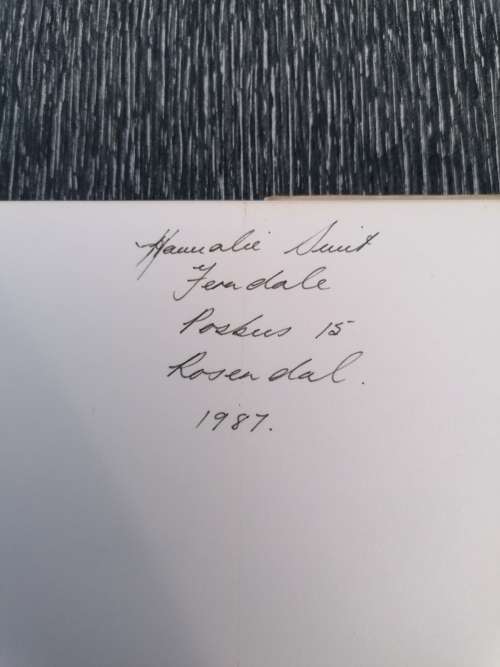 Hannalie Smit
Ferndale
Posbus 15
Rosendal.
1987.